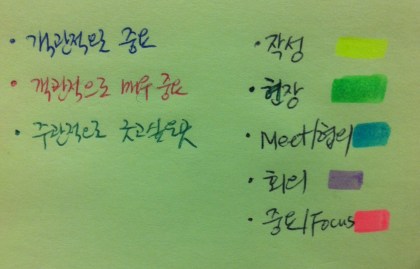 · 객관적으로 중요
· 객관적으로 매우 중요
· 주관적으로
· 작성
· 현장
· Meet/협의
· 회의
· 중요/Focus